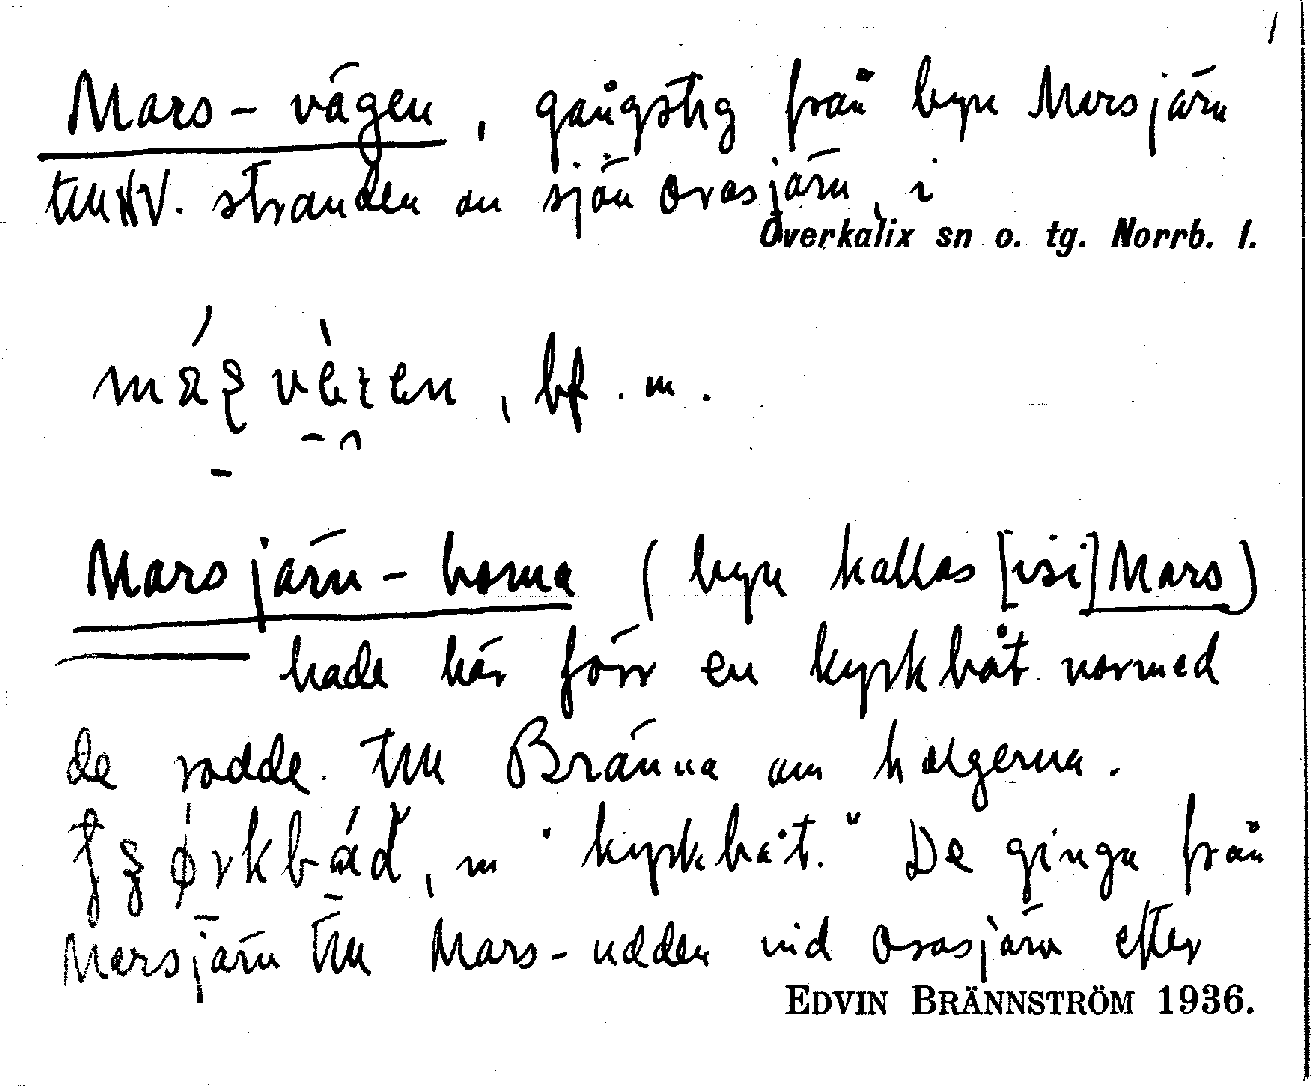 Mars-vägen, gångstig från byn Marsjärv
till V. stranden av sjön Orasjärv, i
Överkalix sn o. tg. Norrb. l.
bf. m.
Marsjärv-borna (byn kallas [isi] Mars)
hade här förr en kyrkbåt varmed
de rodde till Bränna om helgerna.
m "kyrkbåt." De gingo från
Marsjärv till Mars-udden vid Orasjärv efter
EDVIN BRÄNNSTRÖM 1936.